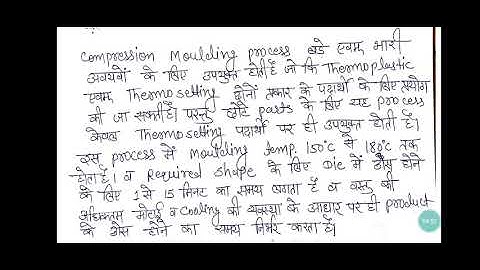 Compression Moulding process बडे एवम भारी
अवयवों के लिए उपयुक्त होती है जो कि Thermoplastic
एवम Thermosetting दोनों प्रकार के पदार्थों के लिए प्रयोग
की जा सकती है। परन्तु छोटे parts के लिए यह process
केवल Thermosetting पदार्थों पर ही उपयुक्त होती है।
इस process में Moulding temp. 150°c से 180°c तक
होता है। व Required shape के लिए Die में ठोस होने
के लिए 1 से 15 मिनट का समय लगता है व वस्तु की
अधिकतम मोटाई व Cooling की व्यवस्था के आधार पर ही product
के ठोस होने का समय निर्भर करता है।